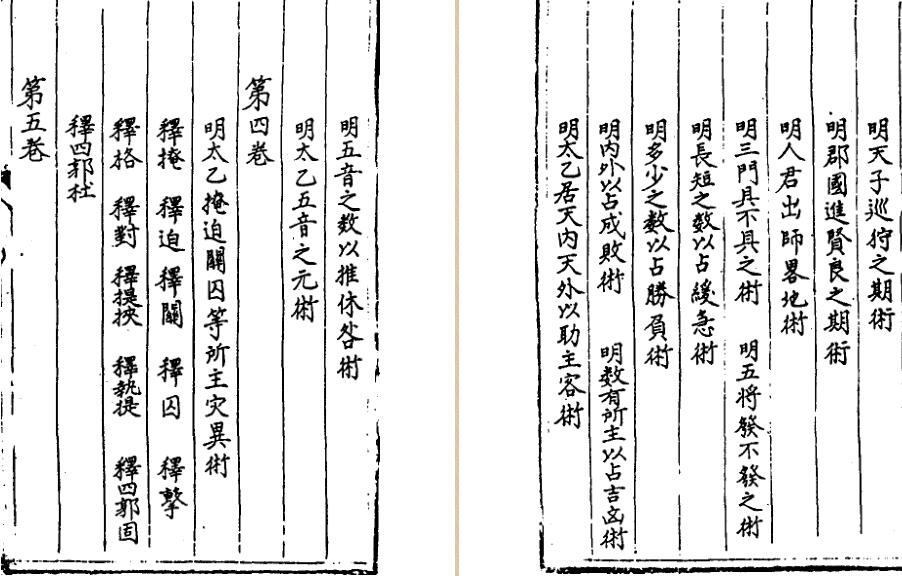 明天子巡狩之期術
明郡國進賢良之期術
明人君出師畧地術
明三門具不具之術 明五将發不發之術
明長短之数以占緩急術
明多少之数以占勝負術
明内外以占成敗術 明数有所主以占吉凶術
明太乙居天内天外以助主客術
明五音之数以推休咎術
明太乙五音之元術
第四卷
明太乙掩迫關囚等所主灾異術
釋掩 釋迫 釋關 釋囚 釋擊
釋格 釋對 釋提挾 釋執提 釋四郭固
釋四郭杜
第五卷